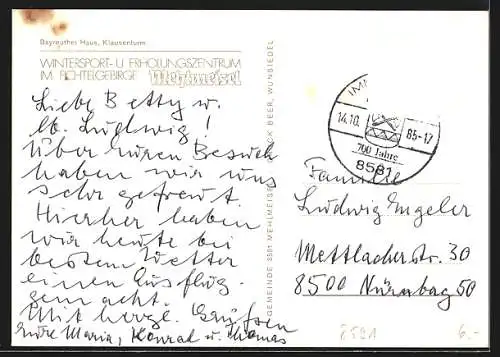 Bayreuther Haus, Klausenturm
WINTERSPORT- U. ERHOLUNGSZENTRUM
IM FICHTELGEBIRGE Mehlmeisel
Liebe Betty u.
lb. Ludwig!
Über euren Besuch
haben wir uns
sehr gefreut.
Hierher haben
wir heute bei
bestem Wetter
einen Ausflug
gemacht.
Mit herzl. Grüßen
Eure Maria, Konrad u. Thomas
GEMEINDE 8591 MEHLMEISEL
BEER, WUNSIEDEL
14.10. 85-17
700 Jahre
8581
Familie
Ludwig Engeler
Mettlacherstr. 30
8500 Nürnbag 50
8591 6.-